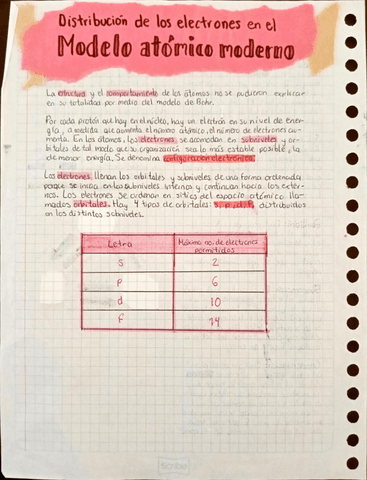 Distribución de los electrones en el
Modelo atómico moderno
La estructura y el comportamiento de los átomos no se pudieron explicar
en su totalidad por medio del modelo de Bohr.
Por cada protón que hay en el núcleo, hay un electrón en su nivel de ener-
gía, a medida que aumenta el número atómico, el número de electrones au-
menta. En los átomos, los electrones se acomodan en subniveles y or-
bitales de tal modo que su organización sea lo más estable posible y la
de menor energía. Se denomina configuración electrónica.
Los electrones llenan los orbitales y subniveles de una forma ordenada
porque se inicia en los subniveles internos y continúan hacia los exter-
nos. Los electrones se ordenan en sitios del espacio atómico lla-
mados orbitales. Hay 4 tipos de orbitales: s, p, d, f, distribuidos
en los distintos subniveles.
Letra Máximo no. de electrones
permitidos
s 2
p 6
d 10
f 14
Scribe